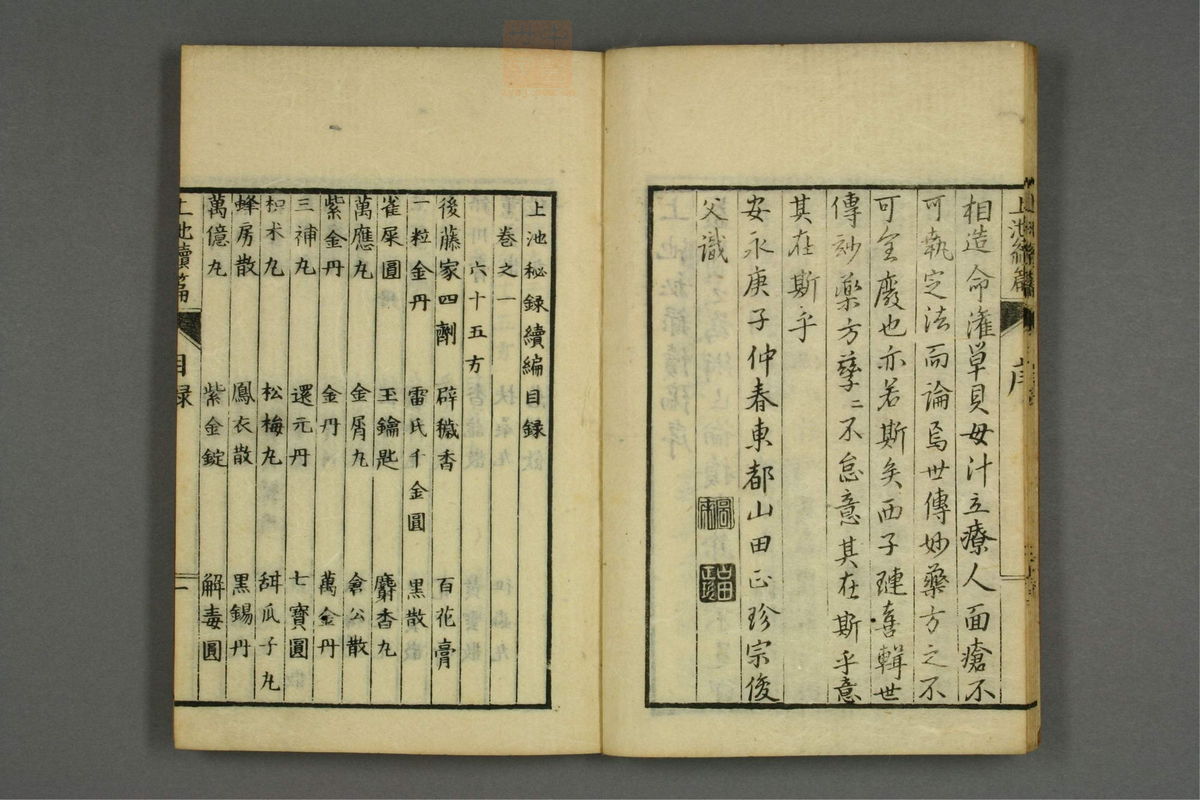 相造命濰草貝母汁立療人面瘡不
可執定法而論焉世傳妙藥方之不
可全廢也亦若斯矣西子璉喜輯世
傳妙藥方孳二不怠意其在斯乎意
其在斯乎
安永庚子仲春東都山田正珍宗俊
父識
上池秘録續編目録
卷之一
六十五方
後藤家四劑 辟穢香 百花膏
一粒金丹 雷氏千金圓 黒散
雀屎圓 玉鑰匙 麝香丸
萬應丸 金屑丸 倉公散
紫金丹 金丹 萬金丹
三補丸 還元丹 七寶圓
枳朮丸 松梅丸 甜瓜子丸
蜂房散 鳳衣散 黒錫丹
萬億丸 紫金錠 解毒圓
上池續篇 目録 一